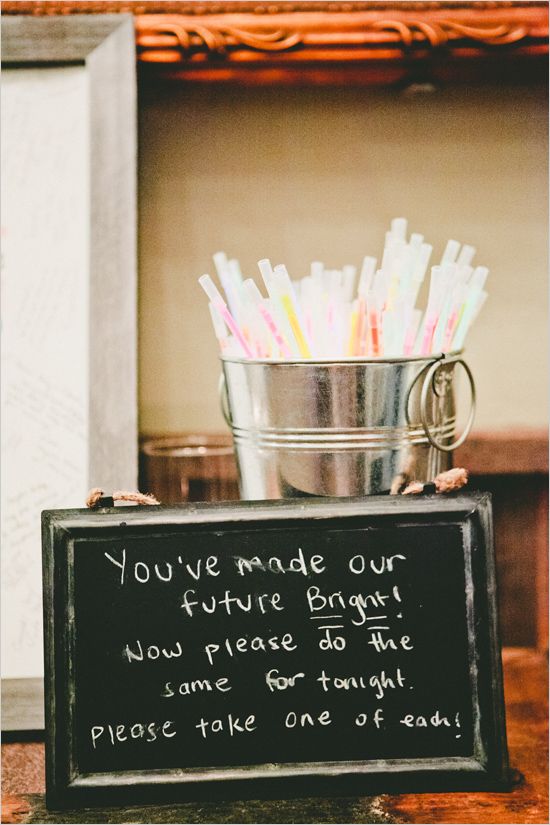 You've made our
future Bright!
Now please do the
same for tonight.
Please take one of each!